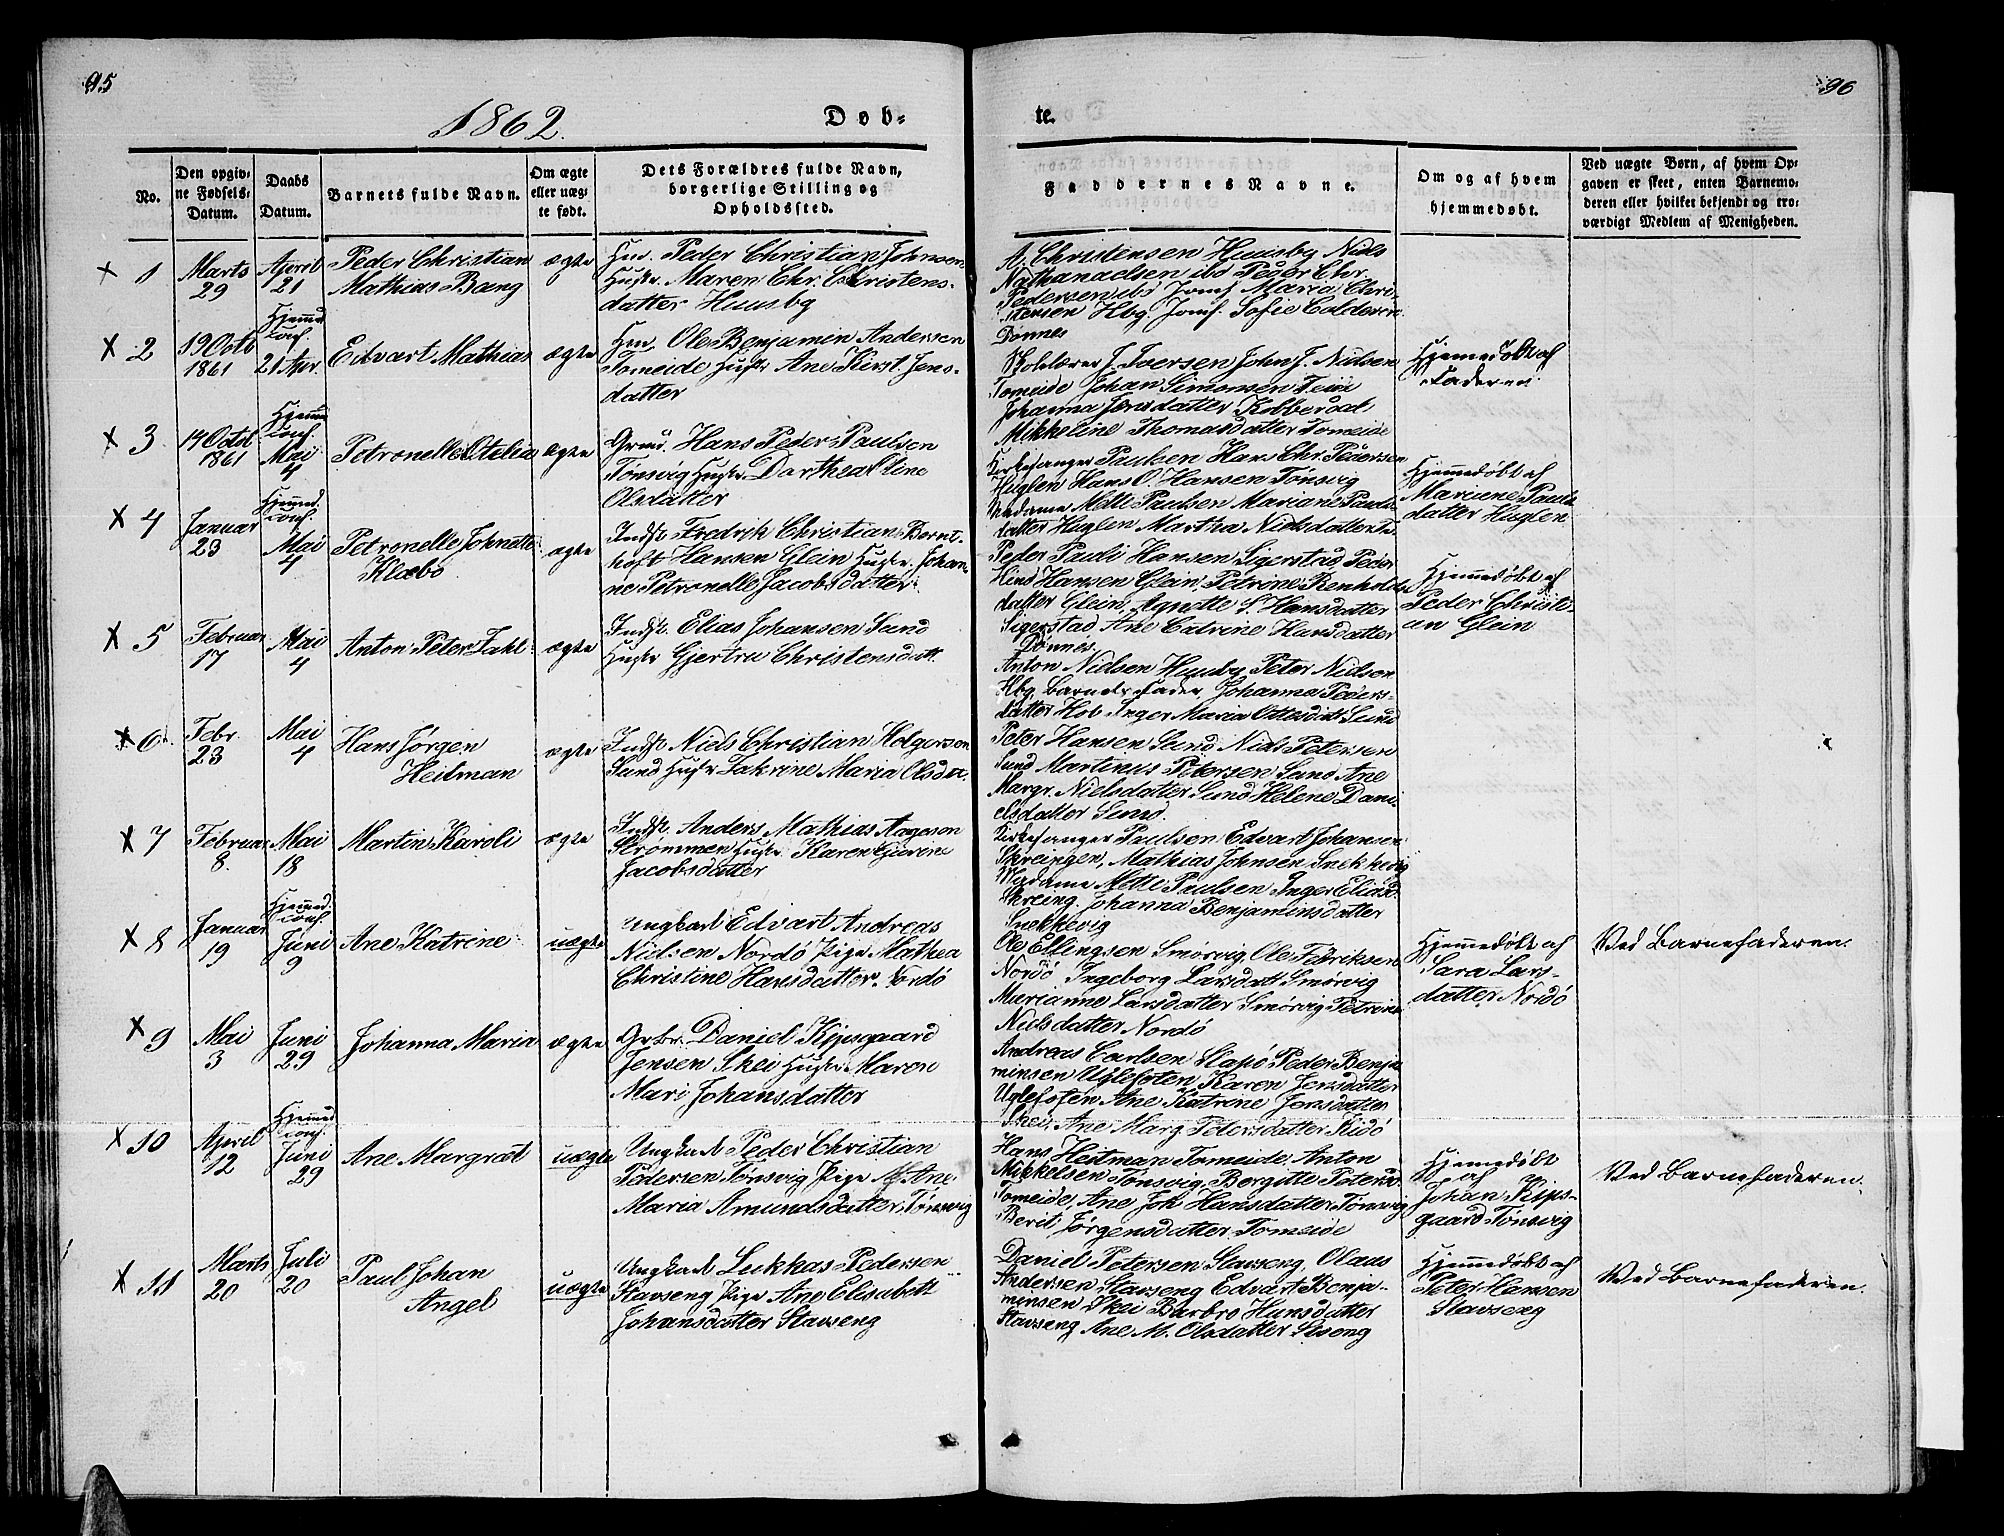 95
96
1862.
Døb-
te.
No.
Den opgiv-
ne Fødsels-
Datum.
Daabs
Datum.
Barnets fulde Navn.
Om ægte
eller uæg-
te født.
Dets Forældres fulde Navn,
borgerlige Stilling og
Opholdssted.
Faddernes Navne.
Om og af hvem
hjemmedøbt.
Ved uægte Børn, af hvem Op-
gaven er skeet, enten Barnemo-
deren eller hvilket bekjendt og tro-
værdigt Medlem af Menigheden.
x 1
Marts
29
April
21
Peder Christian
Mathias Bang
ægte
Hm. Peder Christian Johnsen
Hustr. Maren Chr. Christens-
datter Huusby
A. Christensen Huusby Niels
Nathanaelsen ibd Peder Chr.
Pedersen ibd Jomf. Maria Chri-
stensen Hbg. Jomf. Sofie Coldevin
Dønnes
x 2
19 Octb
1861
Hjemmed
conf.
21 Apr.
Edvart Mathias
ægte
Hm. Ole Benjamin Andersen
Tomeide Hustr Ane Kirst. Jens-
datter
Skolelærer J. Iversen John J. Nielsen
Tomeide Johan Simonsen
Johanna Jensdatter Kobberdal
Mikkeline Thomasdatter Tomeide
Hjemmedøbt af
Faderen.
x 3
14 Octb
1861
Hjemme
conf.
Mai
4
Petronelle Otelia
ægte
Grmd. Hans Peder Paulsen
Tønsvig Hustr Dorthea Oline
Olsdatter
Kirkesanger Paulsen Hans Chr. Pedersen
Huglen Hans O. Hansen Tønsvig
Madame Mette Paulsen Mariane Pauls
datter Huglen Martha Nielsdatter
Hjemmedøbt af
Mariene Pauls
datter Huglen
x 4
Januar
23
Hjemmed
conf.
Mai
4
Petronelle Johnette
Klæbo
ægte
Indst Fredrik Christian Bernt-
hoft Hansen Glein Hustr. Johan-
ne Petronelle Jacobsdatter
Peder Pauli Hansen Sigerstad, Peder
Hind Hansen Glein, Petrine Benholds
datter Glein, Agnette S. Hansdatter
Sigerstad, Ane Catrine Hansdatter
Dönnes
Hjemmedøbt af
Peder Christi-
an Glein
x 5
Februar
17
Mai
4
Anton Peter Zahl
ægte
Indst. Elias Johansen Sund
Hustr Gjertru Christensdatt.
Anton Nielsen Huusby Peter Nielsen
Hbg, Barnets Fader, Johanna Peders-
datter Hob. Inger Maria Ottesdatt Sund
x 6
Febr.
23
Mai
4
Hans Jørgen
Heitman
ægte
Indst Niels Christian Holgersen
Sund Hustr Zakrine Maria Olsda.
Peter Hansen Sund Niels Petersen
Sund Martinus Petersen Sund Ane
Margr. Nielsdatter Sund Helene Dani
elsdatter Sund.
x 7
Februar
8.
Mai
18
Martin Karoli
ægte
Indst. Anders Mathias Aagesen
Strømmen Hustr. Karen Gurine
Jacobsdatter
Kirkesanger Paulsen Edvart Johansen
Skreingen, Mathias Johnsen Snekkevig
Madame Mette Paulsen Inger Eliasd.
Skreing. Johanna Benjaminsdatter
Snekkevig
x 8
Januar
19
Hjemmed.
conf.
Juni
9
Ane Katrine
uægte
Ungkarl Edvart Andreas
Nielsen Nordö Pige Mathea
Christine Hansdatter Nordö
Ole Ellingsen Smørvig, Ole Fdriksen
Nordö Ingeborg Larsdatt Smörvig
Murianne Larsdatter Smörvig Petrine
Nielsdatter Nordö
Hjemmedøbt af
Sara Lars-
datter Nordö
Ved Barnefaderen.
x 9
Mai
3
Juni
29
Johanna Maria
ægte
Grbr. Daniel Kipsgaard
Jensen Skei Hustr Maren
Mari Johansdatter
Andreas Carlsen Slapö Peder Benja
minsen Uglefoten Karen Jensdatter
Uglefoten Ane Katrine Jensdatter
Skei, Ane Marg Petersdatter Kidö
x 10
April
12
Hjemmed
conf.
Juni
29
Ane Margræt
uægte
Ungkarl Peder Christian
Pedersen Tönsvig Pige Ane
Maria Amundsdatter Tönsvig
Hans Heitman Tomeide. Anton
Mikkelsen Tönsvig, Bergitte Petersd
Tomeide, Ane Joh Hansdatter Tönsvig
Berit Jørgensdatter Tomeide
Hjemmedøbt
af
Johan Kips-
gaard Tönsvig
Ved Barnefaderen.
x 11
Marts
20
Juli
20
Paul Johan
Angel
uægte
Ungkarl Lukkas Pedersen
Stavseng Pige Ane Elisabett
Johansdatter Stavseng
Daniel Petersen Stavseng, Olaus
Andersen Stavseng Edvart Benja-
minsen Skei Barbro Hansdatter
Stavseng Ane M. Olsdatter Stseng
Hjemmedøbt af
Peter Hansen
Stavseng
Ved Barnefaderen.